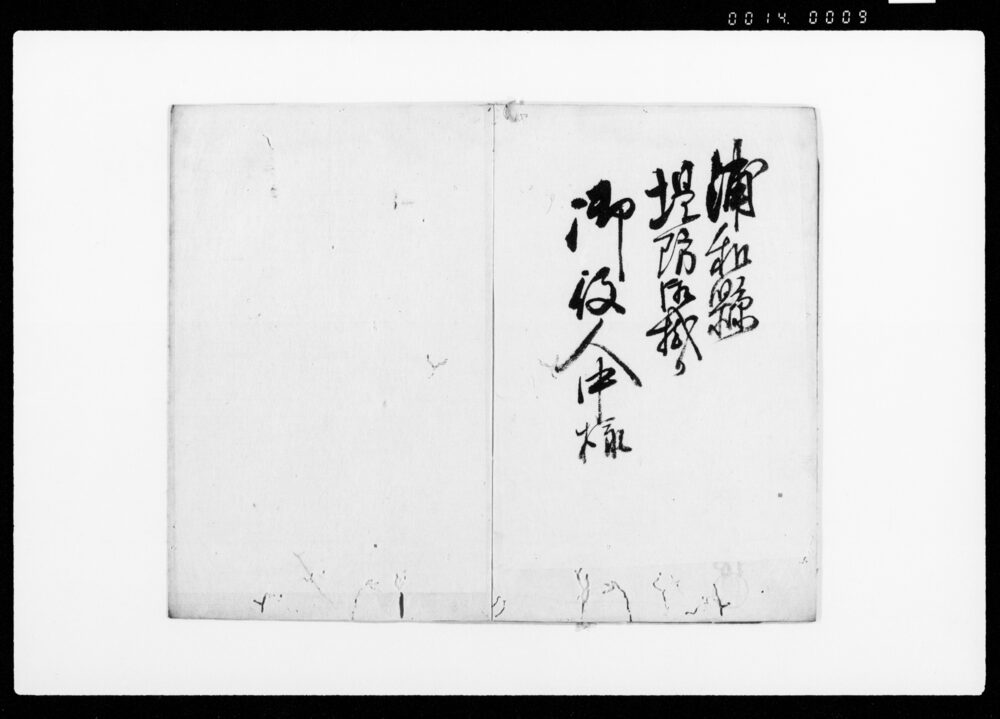 0014. 0009
浦和縣
堤防御掛り
御役人中様